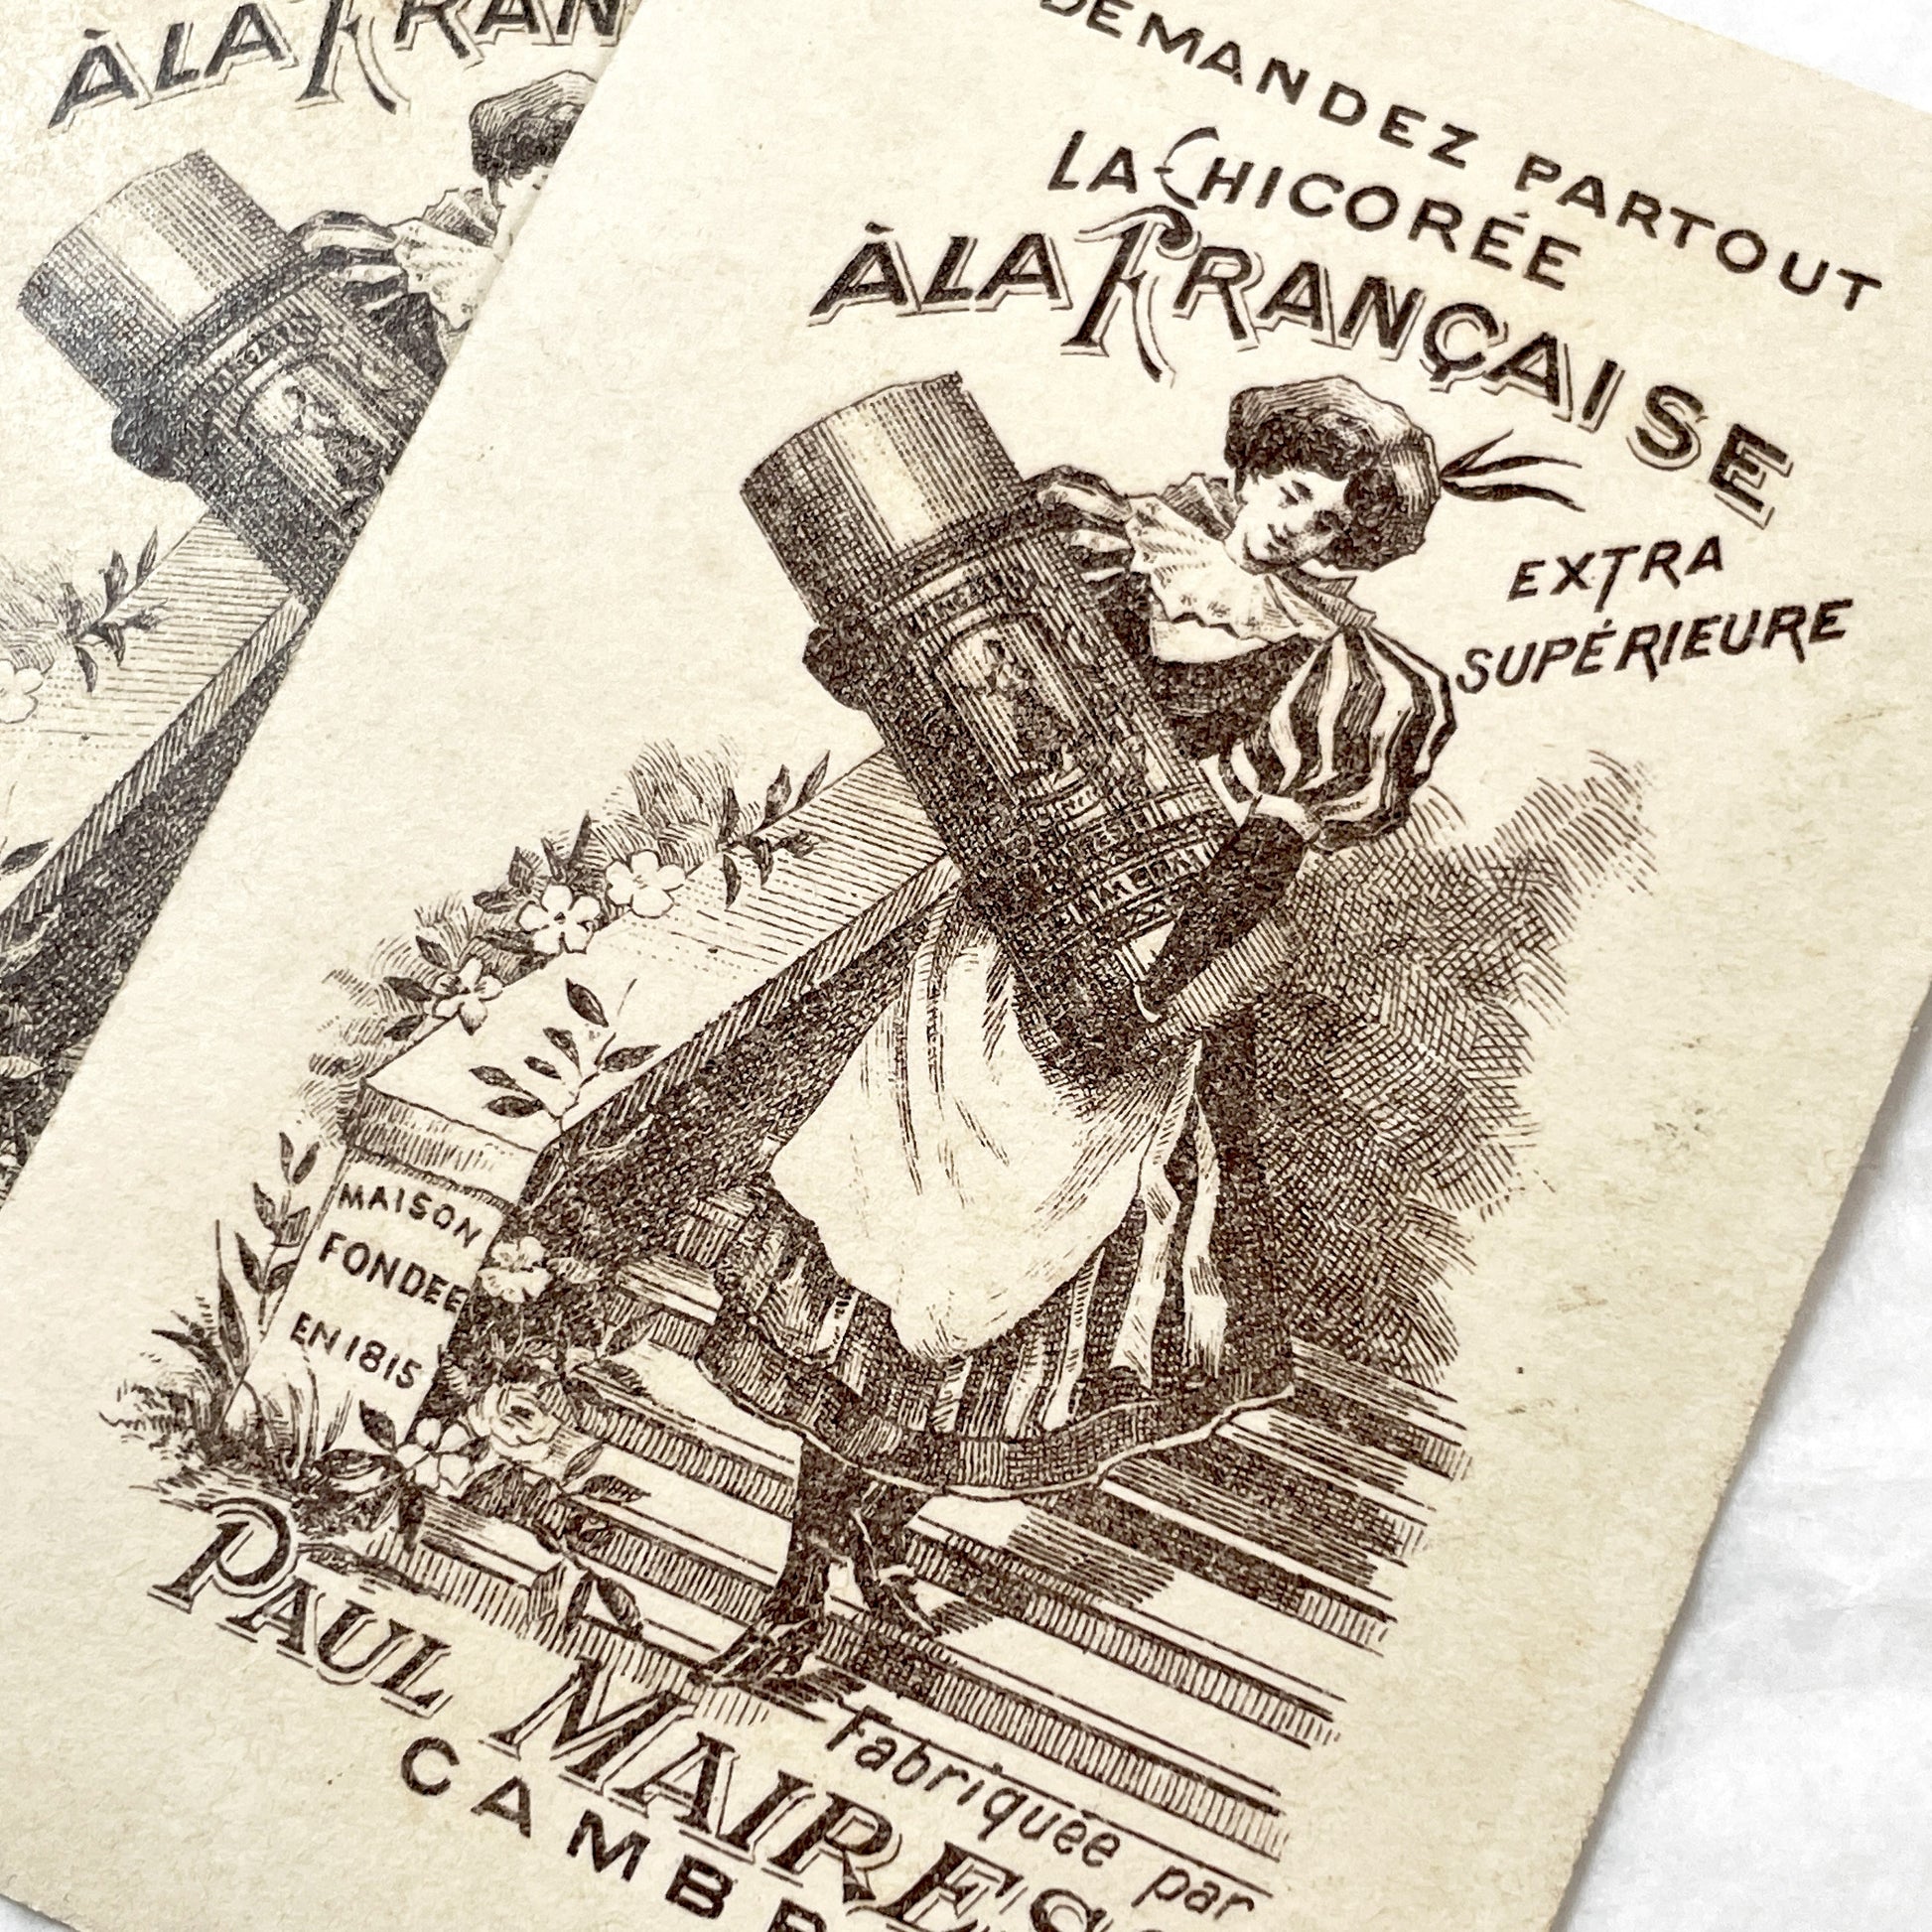 À LA FRAN
DEMANDEZ PARTOUT
LA CHICORÉE
À LA FRANÇAISE
EXTRA
SUPÉRIEURE
MAISON
FONDEE
EN 1815
Fabriquée par
PAUL MAIRESS
CAMB